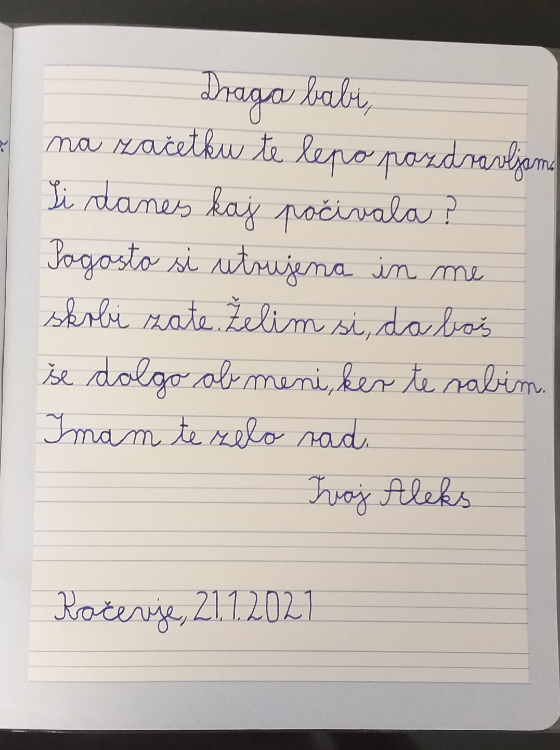 Draga babi,
na začetku te lepo pozdravljam.
Si danes kaj počivala?
Pogosto si utrujena in me
skrbi zate. Želim si, da boš
še dolgo ob meni, ker te rabim.
Imam te zelo rad.
Tvoj Aleks
Kočevje, 21.1.2021